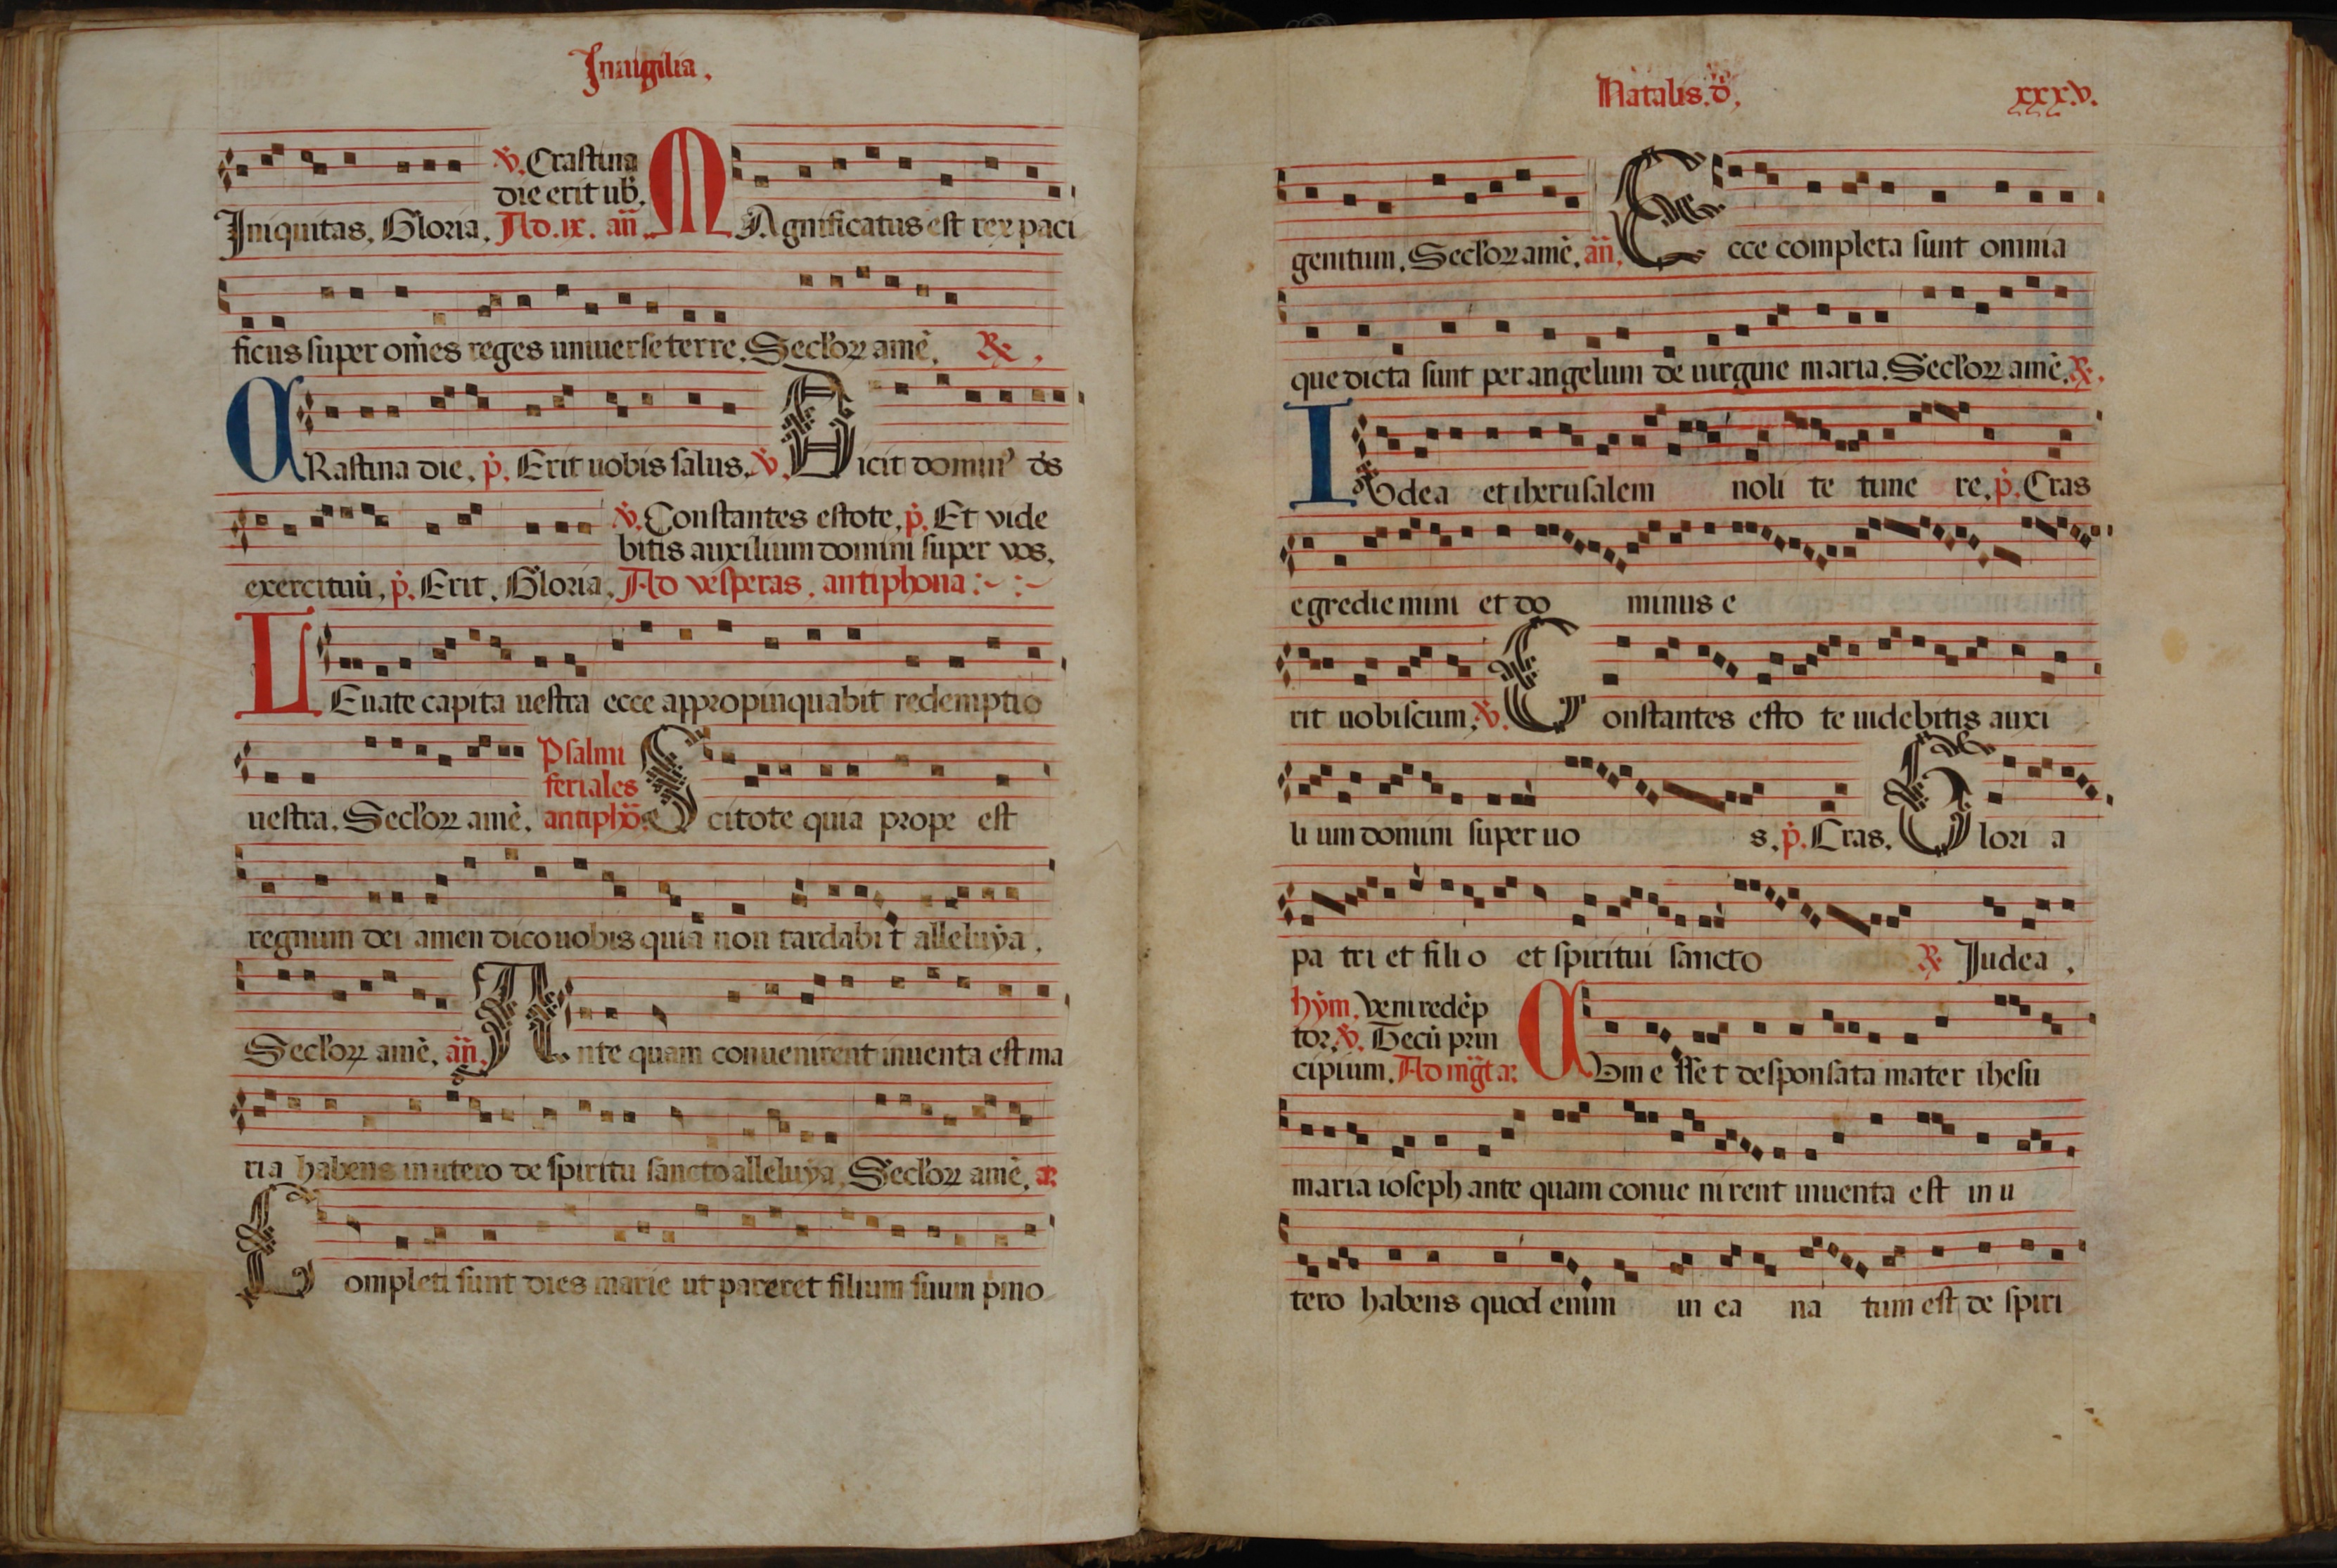 Inuigilia.
℣. Crastina
die erit ub̄.
Iniquitas. Gloria. Ad .ix. an̄. MAgnificatus est rex paci
ficus super om̄es reges uniuerse terre. Secl'oꝝ amē. ℟.
CRastina die. p̄. Erit uobis salus. ℣. Dicit domin᾽ ds̄
℣. Constantes estote. p̄. Et vide
bitis auxilium domini super vos.
exercituū. p̄. Erit. Gloria. Ad vesperas. antiphona :~ :~
LEuate capita uestra ecce appropinquabit redemptio
Psalmi
feriales
uestra. Secl'oꝝ amē. antiphō. Scitote quia prope est
regnum dei amen dico uobis quia non tardabit alleluya.
Secl'oꝝ amē. an̄. Ante quam conuenirent inuenta est ma
ria habens in utero de spiritu sancto alleluya. Secl'oꝝ amē. a.
Completi sunt dies marie ut pareret filium suum pmo
Natalis. d̄. xxxv.
genitum. Secl'oꝝ amē. an̄. Ecce completa sunt omnia
que dicta sunt per angelum de uirgine maria. Secl'oꝝ amē. ℟.
IUdea et iherusalem noli te time re. p̄. Cras
egredie mini et do minus e
rit uobiscum. ℣. Constantes esto te uidebitis auxi
li um domini super uo s. p̄. Cras. Glori a
pa tri et fili o et spiritui sancto ℟. Judea.
hym̄. Veni redēp
tor. ℣. Tecū prin
cipium. Ad mg̅t a. CUm e sset desponsata mater ihesu
maria ioseph ante quam conue nirent inuenta est in u
tero habens quod enim in ea na tum est de spiri